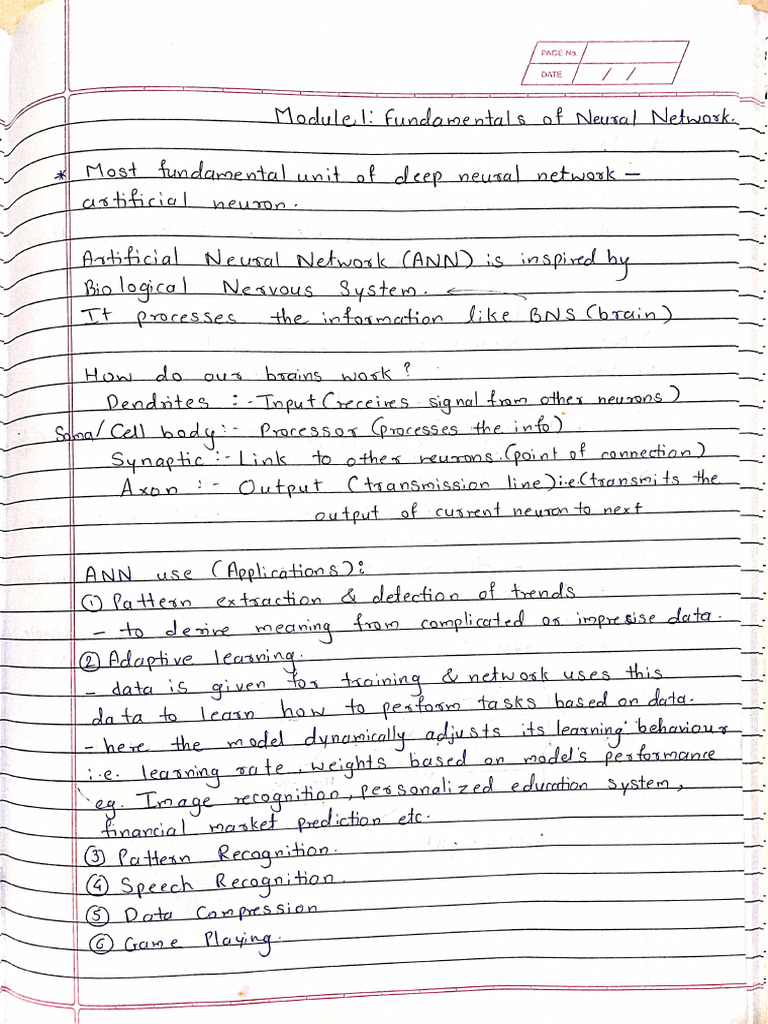 PAGE No.
DATE / /
Module1: Fundamentals of Neural Network.
* Most fundamental unit of deep neural network –
artificial neuron.
Artificial Neural Network (ANN) is inspired by
Biological Nervous System. ←
It processes the information like BNS (brain)
How do our brains work?
Dendrites :- Input (receives signal from other neurons)
Soma/Cell body:- Processor (processes the info)
Synaptic :- Link to other neurons. (point of connection)
Axon :- Output (transmission line) i.e. (transmits the
output of current neuron to next
ANN use (Applications):
① Pattern extraction & detection of trends
- to derive meaning from complicated or impresise data.
② Adaptive learning.
- data is given for training & network uses this
data to learn how to perform tasks based on data.
- here the model dynamically adjusts its learning behaviour
i.e. learning rate, weights based on model's performance
eg. Image recognition, personalized education system,
financial market prediction etc.
③ Pattern Recognition.
④ Speech Recognition.
⑤ Data Compression
⑥ Game Playing.